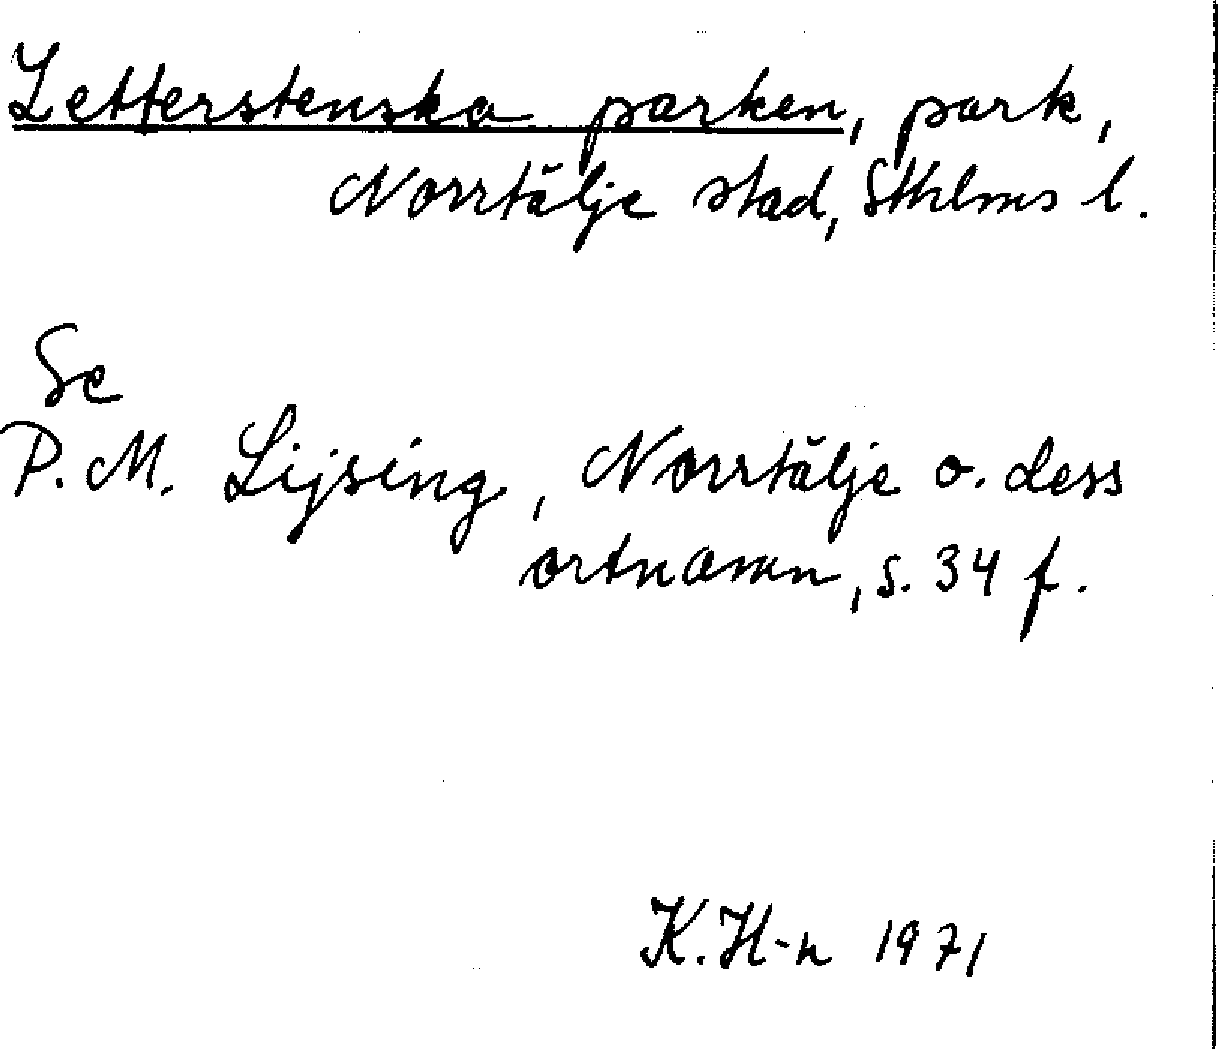 Letterstenska parken, park,
Norrtälje stad, Sthlms l.
Se
P. M. Lijsing, Norrtälje o. dess
ortnamn, s. 34 f.
K. H-n 1971